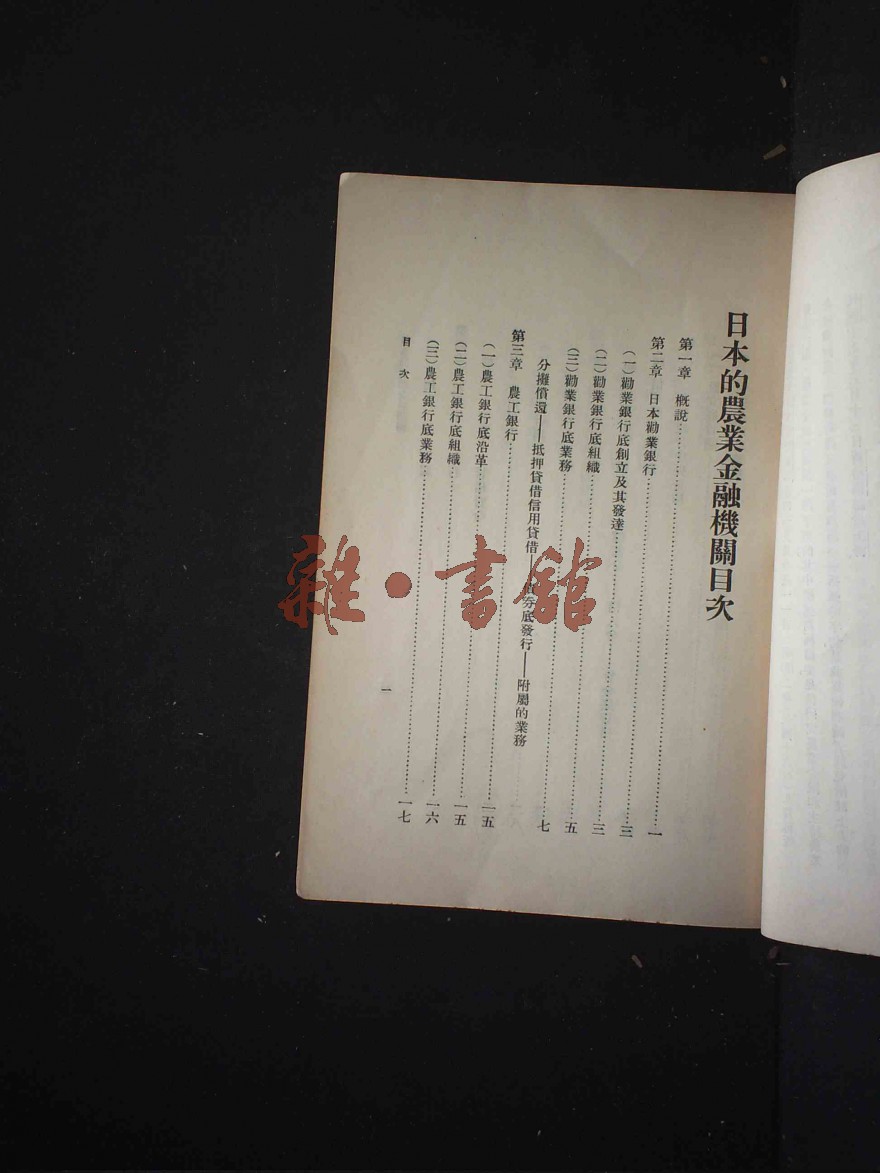 日本的農業金融機關目次
第一章 概說……一
第二章 日本勸業銀行……三
(一)勸業銀行底創立及其發達……三
(二)勸業銀行底組織……五
(三)勸業銀行底業務……七
分攤償還——抵押貸借信用貸借——券底發行——附屬的業務
第三章 農工銀行……一五
(一)農工銀行底沿革……一五
(二)農工銀行底組織……一六
(三)農工銀行底業務……一七
目次 一
雜·書館